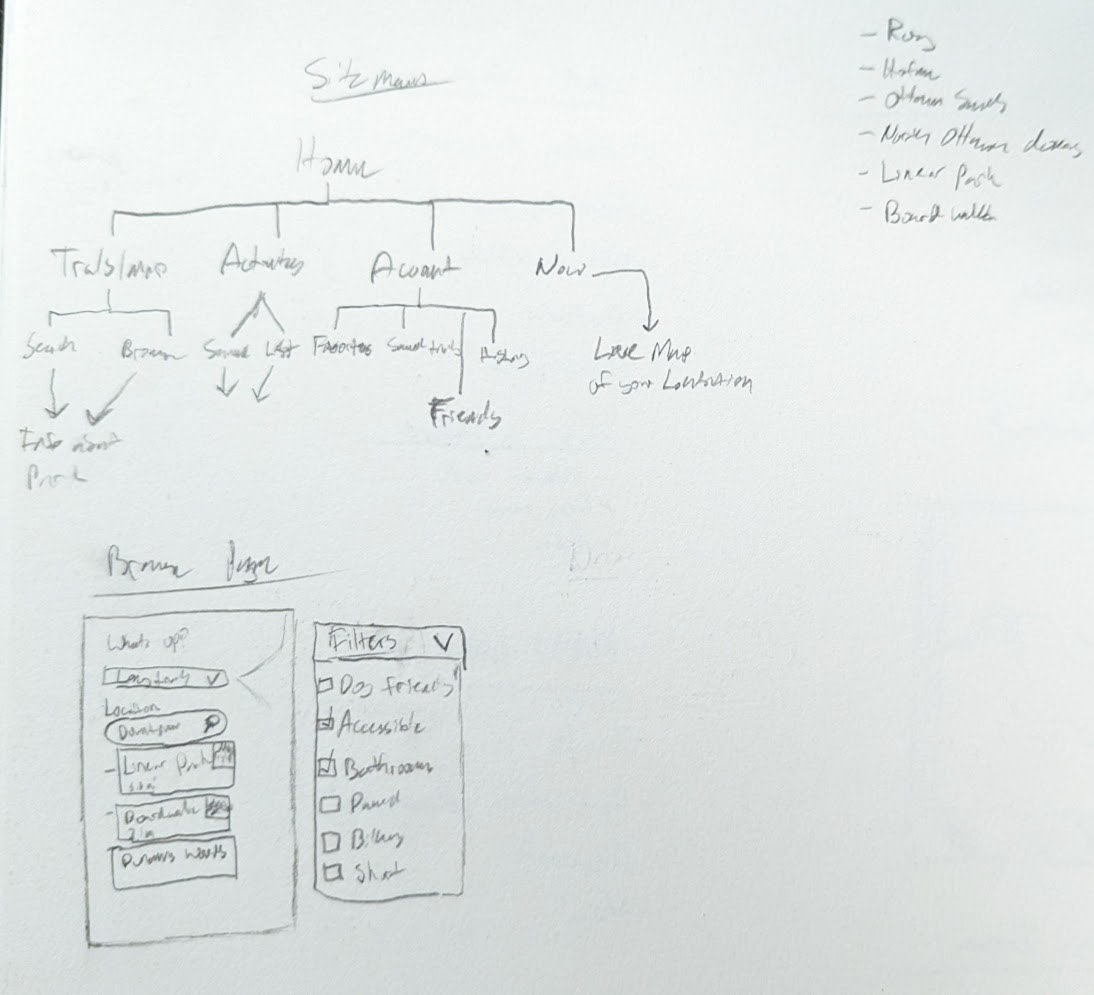 Site map
Home
Trails/Map Activities Account Now
Search Browse Saved List Favorites Saved trails History
Live Map
of your Location
Friends
Info about
Park
- Ottawa
- North Ottawa
- Linear Park
- Boardwalk
Browse Page
Whats up?
Location
Downtown
Linear Park
Boardwalk
Filters
Dog friendly
Accessible
Bathrooms
Paved
Biking
Short